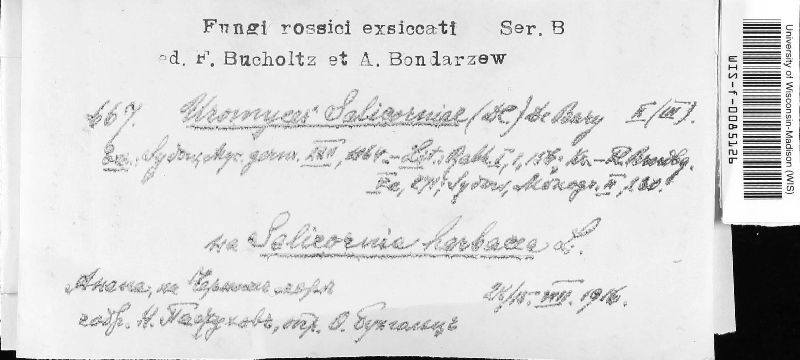 Fungi rossici exsiccati Ser. B
ed. F. Bucholtz et A. Bondarzew
667. Uromyces Salicorniae (DC.) De Bary II (III).
Exs.: Sydow, Myc. germ. – Lit.: Rabh. I, 1, 156. Kr.-Fl. Brndbg.
Va, Sydow, Monogr. II,
на Salicornia herbacea L.
Анапа, на Черномъ морѣ 1916.
собр. Н. опр. Ѳ. Бухгольцъ
University of Wisconsin-Madison (WIS)
WIS-f-0085126